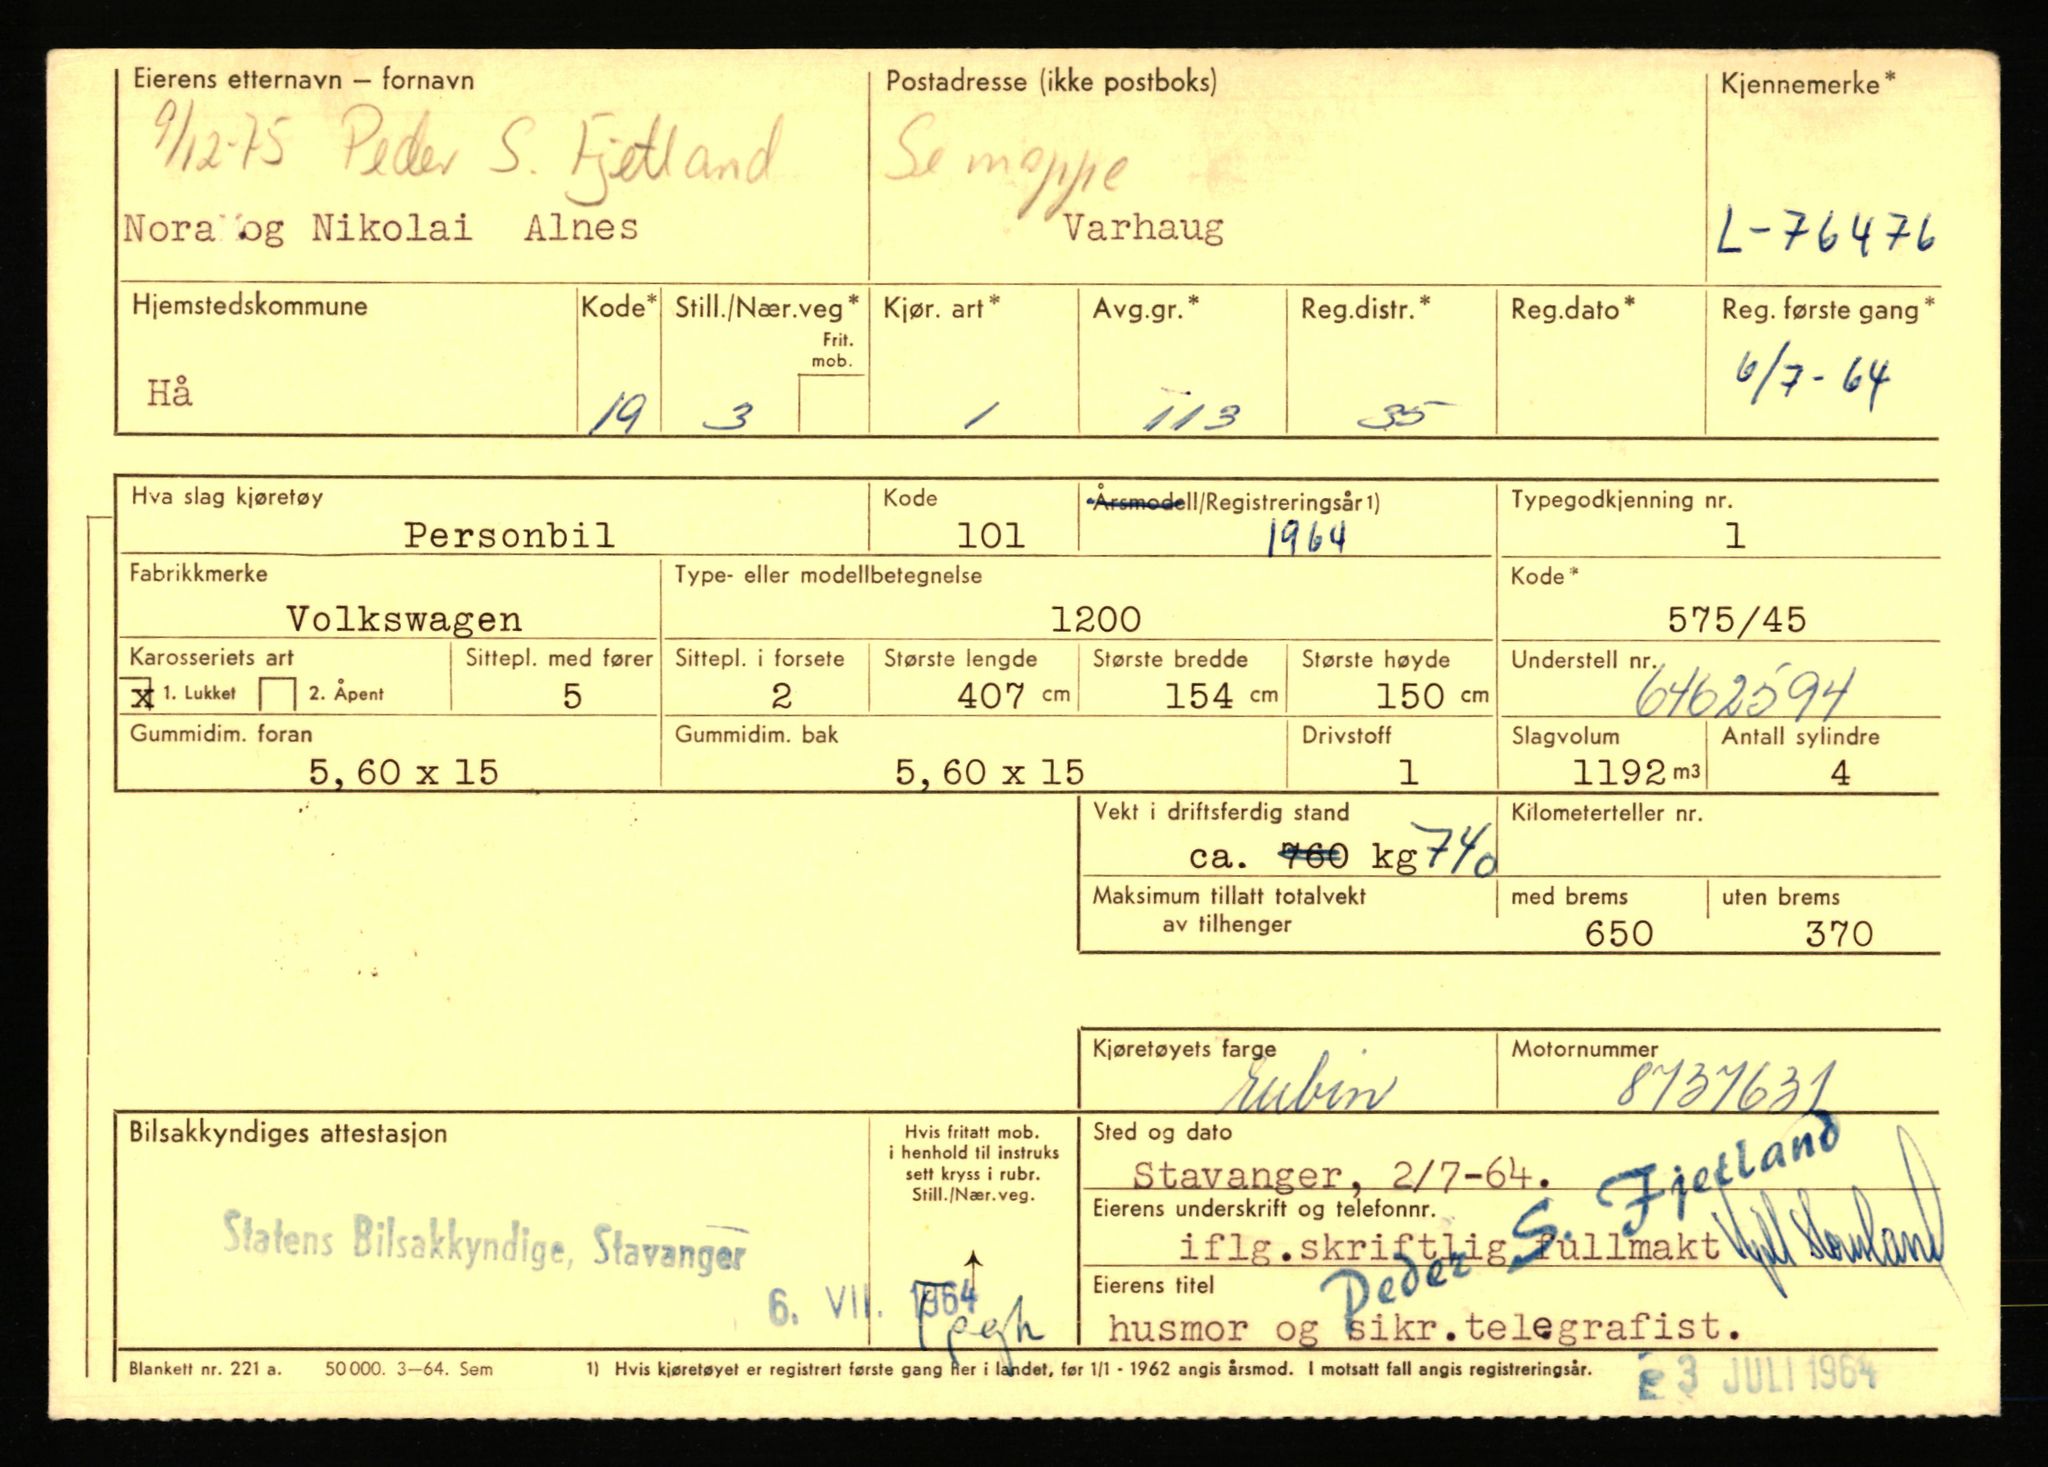 Eierens etternavn – fornavn
Postadresse (ikke postboks)
Kjennemerke*
9/12-75 Peder S. Fjetland
Se mappe
Nora og Nikolai Alnes
Varhaug
L-76476
Hjemstedskommune
Kode*
Still./Nær.veg*
Frit. mob.
Kjør. art*
Avg.gr.*
Reg.distr.*
Reg.dato*
Reg. første gang*
Hå
19
3
1
113
35
6/7-64
Hva slag kjøretøy
Kode
Årsmodell/Registreringsår 1)
Typegodkjenning nr.
Personbil
101
1964
1
Fabrikkmerke
Type- eller modellbetegnelse
Kode*
Volkswagen
1200
575/45
Karosseriets art
Sittepl. med fører
Sittepl. i forsete
Største lengde
Største bredde
Største høyde
Understell nr.
x 1. Lukket 2. Åpent
5
2
407 cm
154 cm
150 cm
6462594
Gummidim. foran
Gummidim. bak
Drivstoff
Slagvolum
Antall sylindre
5,60 x 15
5,60 x 15
1
1192 m3
4
Vekt i driftsferdig stand
Kilometerteller nr.
ca. 760 kg 740
Maksimum tillatt totalvekt
av tilhenger
med brems
uten brems
650
370
Kjøretøyets farge
Motornummer
Rubin
8737631
Bilsakkyndiges attestasjon
Hvis fritatt mob.
i henhold til instruks
sett kryss i rubr.
Still./Nær.veg.
Sted og dato
Stavanger, 2/7-64.
Eierens underskrift og telefonnr.
iflg.skriftlig fullmakt
Peder S. Fjetland
Eierens titel
husmor og sikr.telegrafist.
Statens Bilsakkyndige, Stavanger
6. VII. 1964
Blankett nr. 221 a. 50 000. 3–64. Sem
1) Hvis kjøretøyet er registrert første gang her i landet, før 1/1 - 1962 angis årsmod. I motsatt fall angis registreringsår.
3 JULI 1964